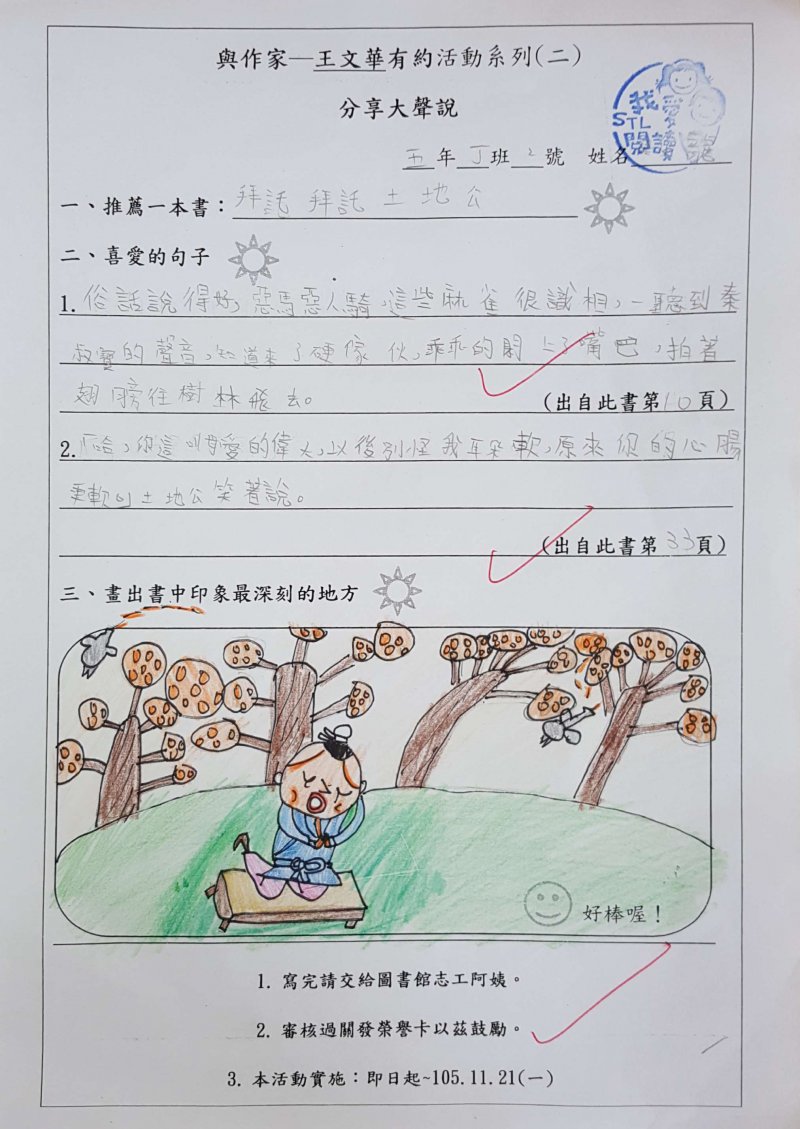 與作家─王文華有約活動系列(二)
分享大聲說
我愛
STL
閱讀
五年丁班2號 姓名
一、推薦一本書：拜託拜託土地公
二、喜愛的句子
1.俗話說得好,惡馬惡人騎,這些麻雀很識相,一聽到秦
叔寶的聲音,知道來了硬傢伙,乖乖的閉上了嘴巴,拍著
翅膀往樹林飛去。
(出自此書第10頁)
2.哈,你這叫母愛的偉大,以後別怪我耳朵軟,原來你的心腸
更軟。」土地公笑著說。
(出自此書第33頁)
三、畫出書中印象最深刻的地方
好棒喔！
1. 寫完請交給圖書館志工阿姨。
2. 審核過關發榮譽卡以茲鼓勵。
3. 本活動實施：即日起~105.11.21(一)